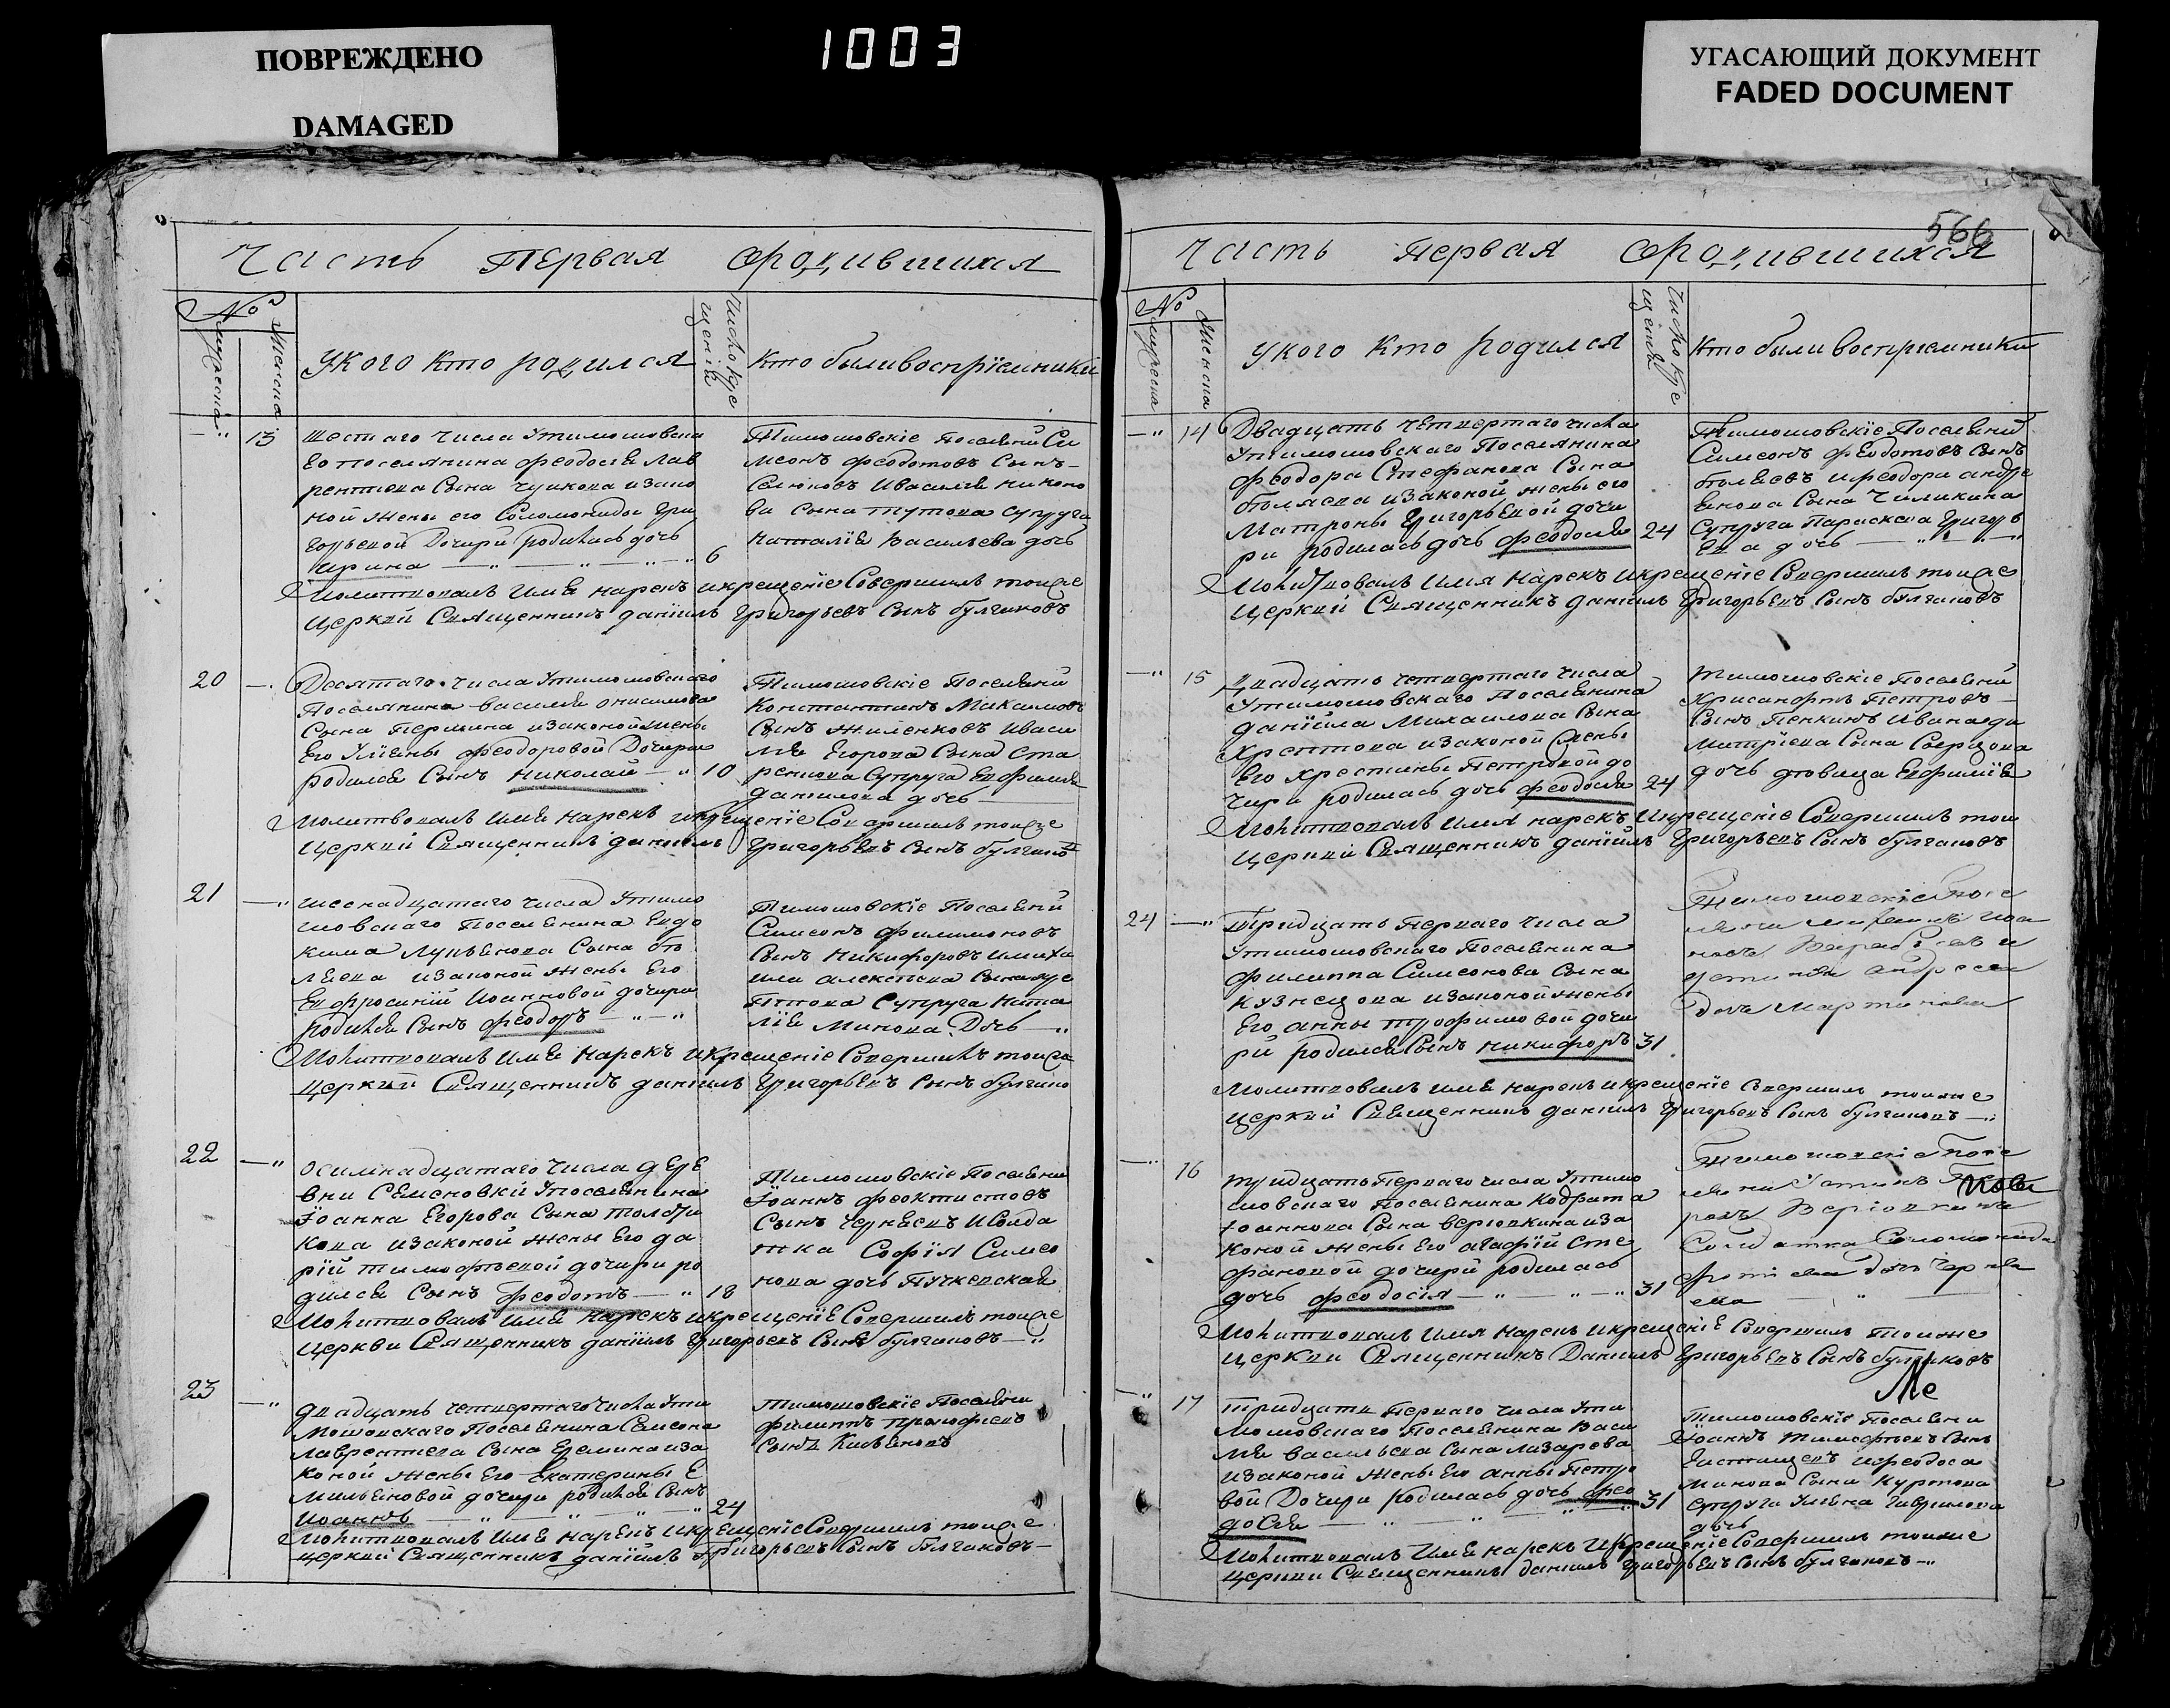 ПОВРЕЖДЕНО
DAMAGED
1003
УГАСАЮЩИЙ ДОКУМЕНТ
FADED DOCUMENT
Часть Первая ородившихся
№
Мужеска
Женска
Укого кто родился
Число кре
щенїя
Кто были воспрїемники
—„ 13
Шестаго числа Утимошовска
го поселянина феодосея Лав
рентиева Сына чуикова изако
ной жены его Соломониды Гри
горьевой Дочири родилась дочь
Ирина —„—„—„ 6
Тимошовскіе поселяни Си
меонъ феодотовъ Сынъ
ва сына тутова супруга
наталїя Васильева дочь
Молитвовалъ имя нарекъ икрещенїе Совершилъ тоиже
Церкви Священникъ данїилъ Григорьевъ Сынъ булгаковъ
20 —.
Десятаго числа Утимошовскаго
Поселянина василея онисимова
Сына Першина изаконой жены
Его Ульяны феодоровой Дочири
родился Сынъ николай —„ 10
Тимошовскіе Поселяни
Константинъ Максимовъ
Сынъ Жиленковъ иваси
лея Егорова Сына Ста
рикова Супруга Евфимия
данилова дочь —
Молитвовалъ имя нарекъ икрещенїе Совершилъ тоиже
Церкви Священникъ данилъ Григорьевъ Сынъ булгако
21 —„
Шеснадцатаго числа Утимо
шовскаго Поселянина Евдо
кима Лукьянова Сына бо
ляева изаконой жены Его
Евфросинїи Иоанновой дочири
родился Сынъ феодоръ —„—„
Тимошовскїе Поселяни
Симеонъ филимоновъ
Сынъ Никифоровъ имиха
ила алексеева Сына
Супруга ната
лїя Минова Дочь —„
Молитвовалъ имя нарекъ икрещенїе Совершилъ тоиже
Церкви Священникъ данїилъ Григорьевъ Сынъ булгако
22 —„
Осмнадцатаго числа дере
вни Семеновки Упоселянина
Їоанна Егорова Сына толсти
кова изаконой жены Его да
рїи тимофеевой дочири ро
дился Сынъ феодотъ —„ 18
Тимошовскїе Поселяни
Їоаннъ феоктистовъ
Сынъ Черняевъ исолда
тка Софїя Симео
нова дочь Пучкевская
Молитвовалъ имя нарекъ икрещенїе Совершилъ тоиже
Церкви Священникъ данїилъ Григорьевъ Сынъ булгаковъ —„
23 —„
Двадцать четвертаго числа Ути
мошовскаго Поселянина Семиона
Лаврентиева Сына Еремина иза
коной жены Его Екатерины Е
мильяновой дочири родился Сынъ
Иоаннъ —„—„—„—„ 24
Тимошовскїе Поселяни
филиппъ прокофиевъ
Сынъ
Молитвовалъ имя нарекъ икрещенїе Совершилъ тоиже
Церкви Священникъ данїилъ Григорьевъ Сынъ булгаковъ —
566
Часть Первая ородившихся
№
Мужеска
Женска
Укого кто родился
Число кре
щенїя
Кто были воспрїемники
—„ 14
Двадцать четвертаго числа
Утимошовскаго Поселянина
феодора Стефанова Сына
боляева изаконой жены его
Матроны Григорьевой дочи
ри родилась дочь феодосея 24
Тимошовскїе Поселяни
Симеонъ феодотовъ Сынъ
боляевъ ифеодора андре
янова Сына Чиликина
Супруга Параскева Григорь
ева дочь —„—„—
Молитвовалъ имя нарекъ икрещенїе Совершилъ тоиже
Церкви Священникъ данїилъ Григорьевъ Сынъ булгаковъ
—„ 15
Двадцать четвертаго числа
Утимошовскаго Поселянина
данїила Михаилова Сына
Хрептова изаконой жены
Его Хрестины Петровой до
чири родилась дочь феодосея 24
Тимошовскїе Поселяни
Хрисанфъ Петровъ
Сынъ Пенкинъ ивана ди
митрїева Сына
дочь довица Евфимїя
Молитвовалъ имя нарекъ икрещенїе Совершилъ тои
Церкви Священникъ данїилъ Григорьевъ Сынъ булгаковъ
24 —„
Тридцать Перваго числа
Утимошовскаго Поселянина
филиппа Симеонова Сына
Кузнецова изаконой жены
Его анны трофимовой дочи
ри родился Сынъ никифоръ 31
Тимошовскїе посе
андреева
Дочь Мартинова
Молитвовалъ имя нарекъ икрещенїе Совершилъ тоиже
Церкви Священникъ данїилъ Григорьевъ Сынъ булгаковъ —„
—„ 16
Тридцать Перваго числа Утимо
шовскаго Поселянина Кодрата
Їоаннова Сына веріовкина иза
коной жены Его агафїи Сте
фановой дочири родилась
дочь феодосїя —„—„—„ 31
Тимошовскїе посе
ляни Устинъ
ровъ Веріовкинъ
Солдатка Соломонида
дочь Черня
ева —„—
Молитвовалъ имя нарекъ икрещенїе Совершилъ тоиже
Церкви Священникъ Данїилъ Григорьевъ Сынъ булгаковъ
—„ 17
Тридцать Перваго числа Ути
мошовскаго Поселянина Васи
лея васильева Сына лазарева
изаконой жены Его анны Петро
вой Дочири родилась дочь фео
досея —„—„—„ 31
Тимошовскїе Поселяни
Їоаннъ Тимофеевъ Сынъ
ифеодоса
Минова Сына Куртова
супруга Ульяна Гаврилова
дочь
Молитвовалъ имя нарекъ икрещенїе Совершилъ тоиже
Церкви Священникъ данїилъ Григорьевъ Сынъ булгаковъ —„